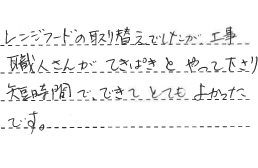 レンジフードの取り替えでしたが 工事
職人さんが てきぱきと やって下さり
短時間で、できて とても よかった
です。